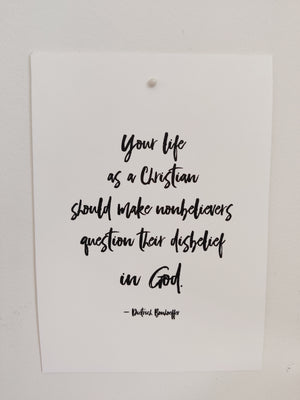 Your life
as a Christian
should make nonbelievers
question their disbelief
in God.
– Dietrich Bonhoeffer